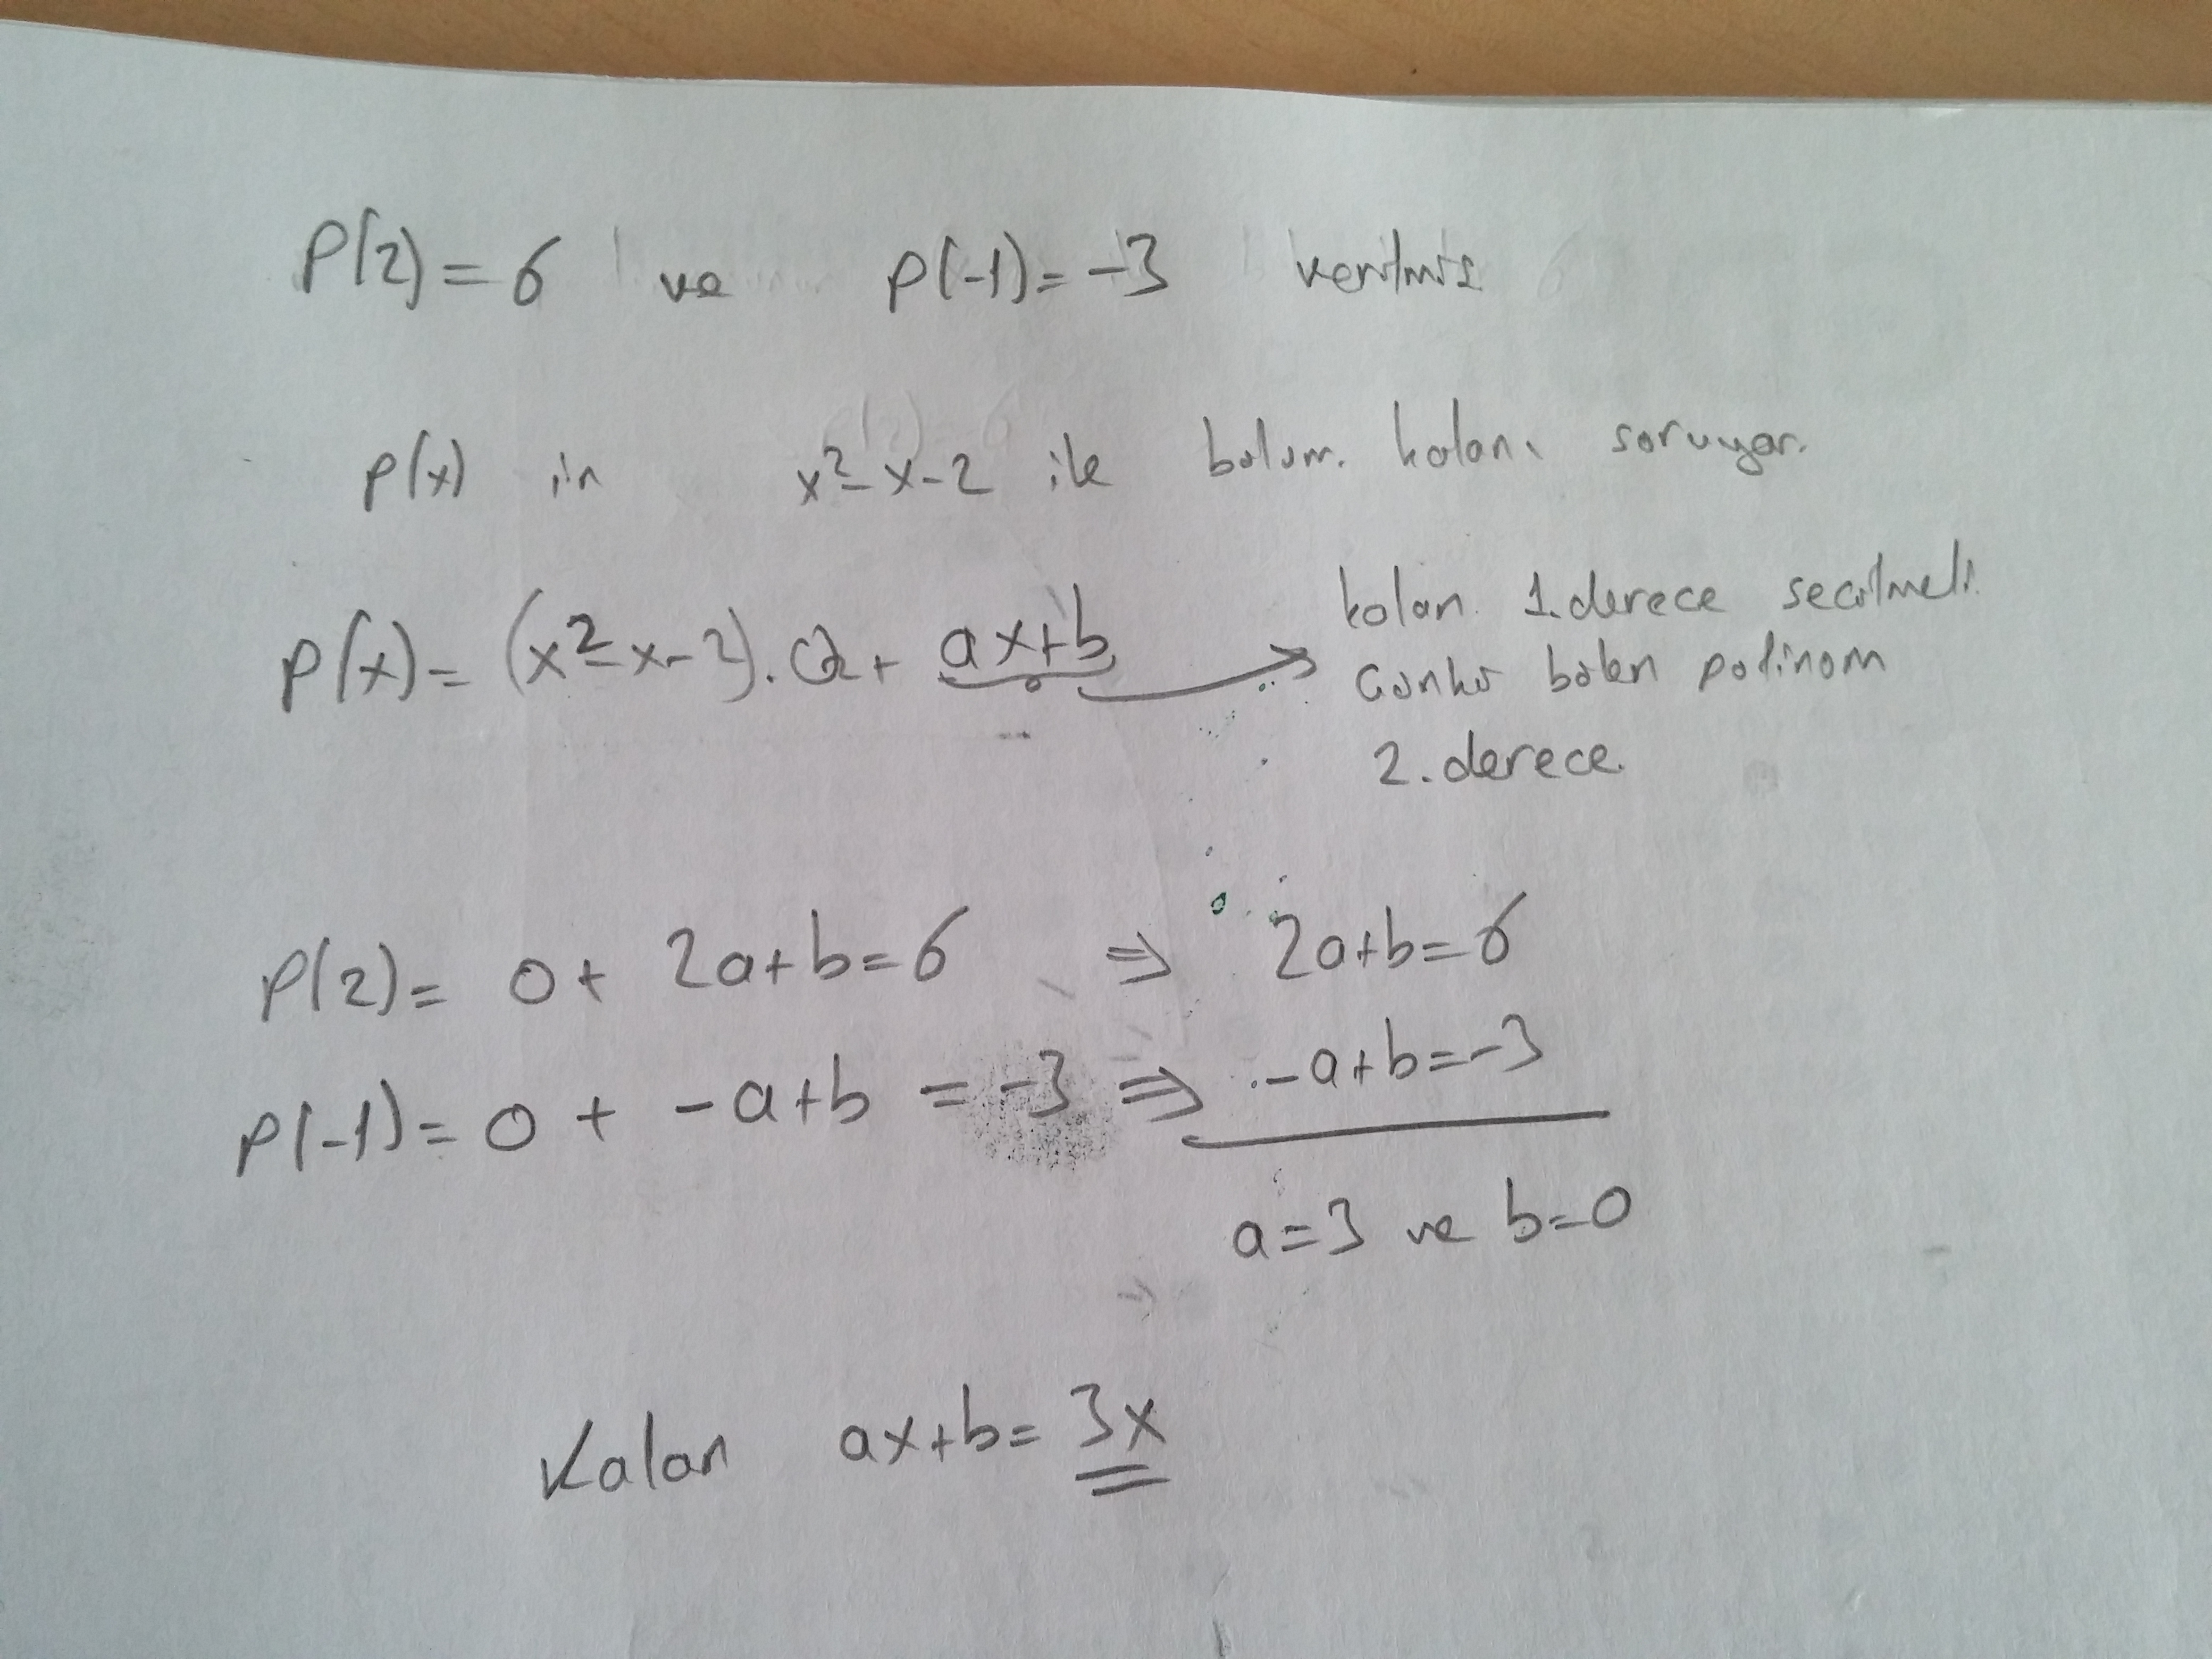 P(2) = 6 ve P(-1) = -3 verilmiş
P(x) in x² - x - 2 ile bölüm. kalanı soruyor.
P(x) = (x² - x - 2). Q + ax+b
kalan 1. derece seçilmeli.
Çünkü bölen polinom
2. derece.
P(2) = 0 + 2a+b = 6 ⇒ 2a+b = 6
P(-1) = 0 + -a+b = -3 ⇒ -a+b = -3
a = 3 ve b = 0
Kalan ax+b = 3x